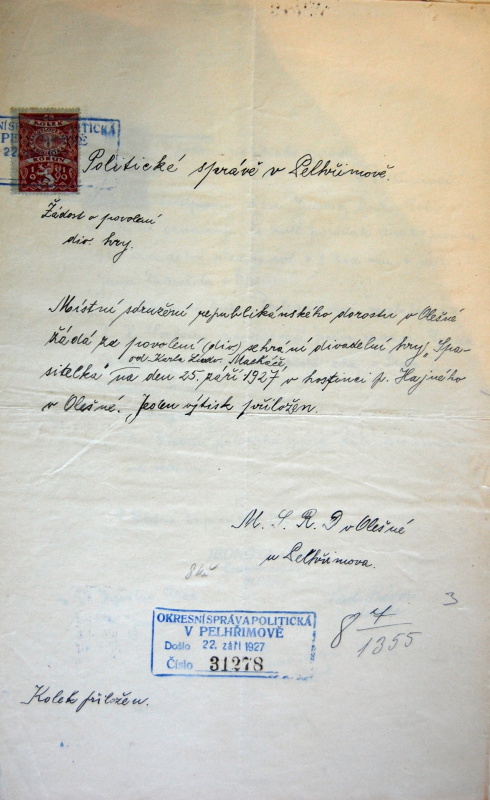 OKRESNÍ SPRÁVA POLITICKÁ
V PELHŘIMOVĚ
22.
KOLEK
KORUN
Politické správě v Pelhřimově.
Žádost o povolení
div. hry.
Místní sdružení republikánského dorostu v Olešné
žádá za povolení (div) sehrání divadelní hry „Spa-
od Karla Ludv. Maskáče,
sitelka" na den 25. září 1927 v hostinci p. Hajného
v Olešné. Jeden výtisk přiložen.
M. S. R. D v Olešné
u Pelhřimova.
8 kč
OKRESNÍ SPRÁVA POLITICKÁ
V PELHŘIMOVĚ
Došlo 22. září 1927
Číslo 31278
8 7/1355
3
Kolek přiložen.